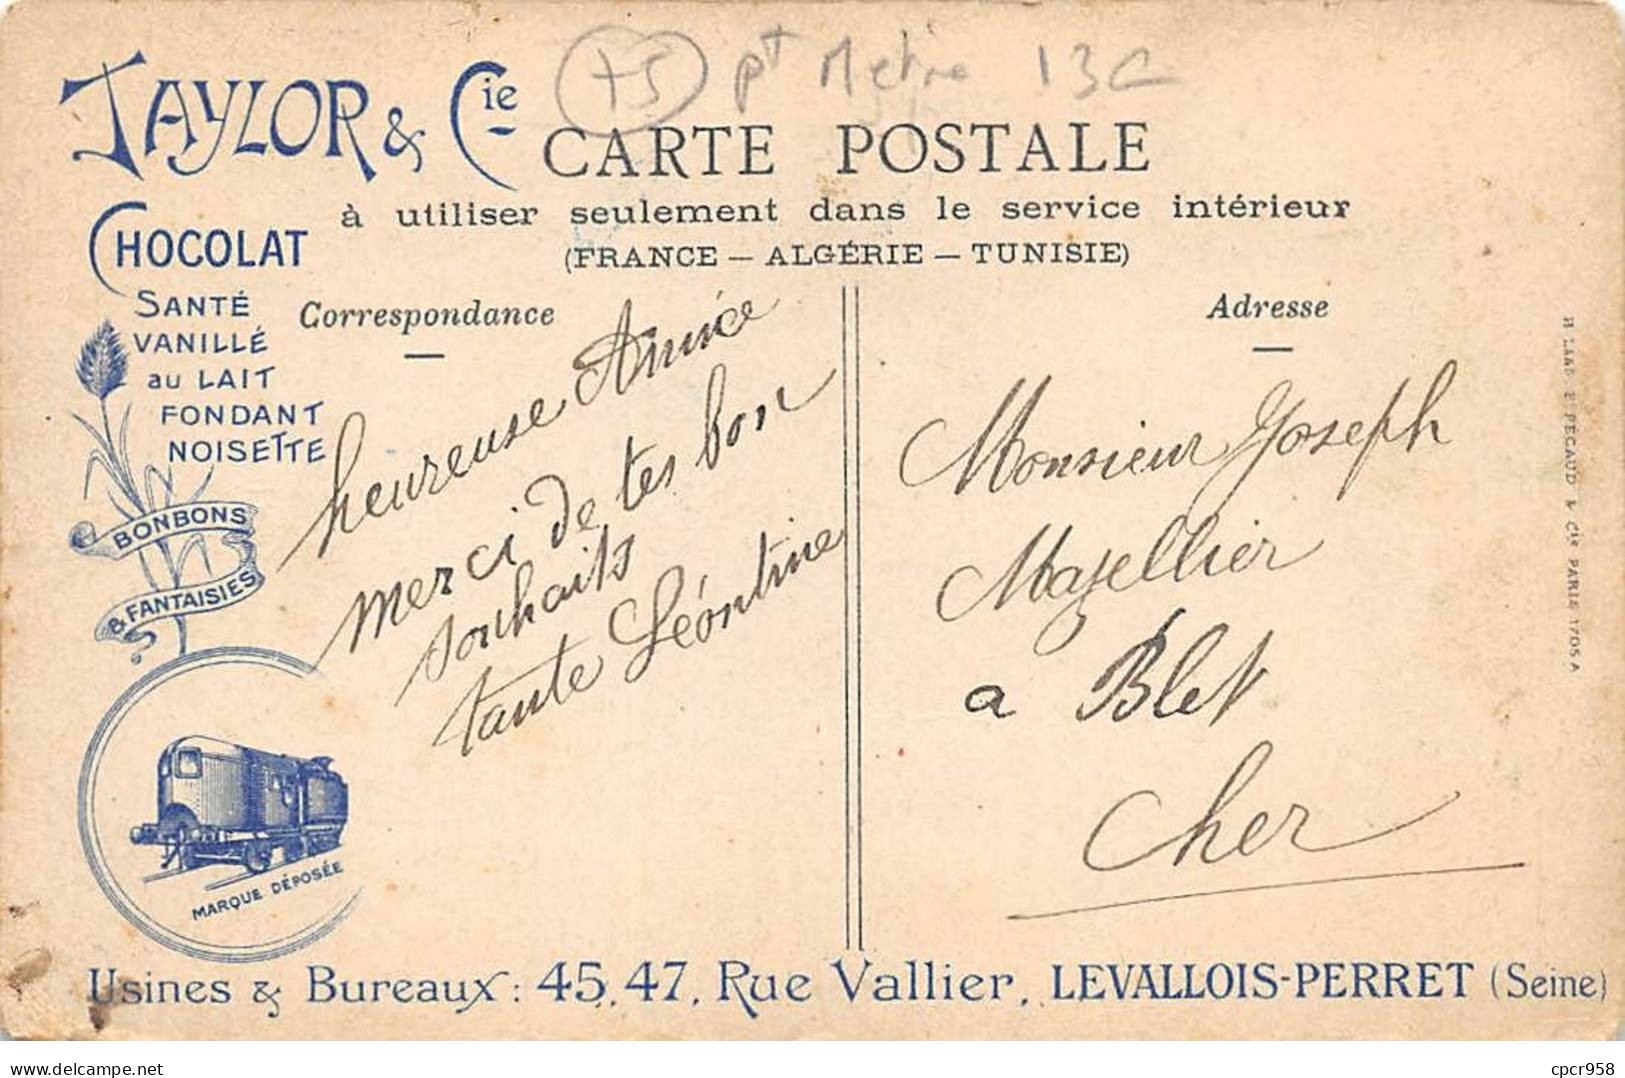 75 pt Metro 13€
TAYLOR & Cie
CARTE POSTALE
à utiliser seulement dans le service intérieur
(FRANCE — ALGÉRIE — TUNISIE)
CHOCOLAT
SANTÉ
VANILLÉ
au LAIT
FONDANT
NOISETTE
BONBONS
& FANTAISIES
MARQUE DÉPOSÉE
Correspondance
heureuse Année
merci de tes bon
souhaits
tante Léontine
Adresse
Monsieur Joseph
Mazellier
a Blet
Cher
PÉCAUD & Cie PARIS 1705 A
Usines & Bureaux : 45, 47, Rue Vallier, LEVALLOIS-PERRET (Seine)
www.delcampe.net
cpcr958